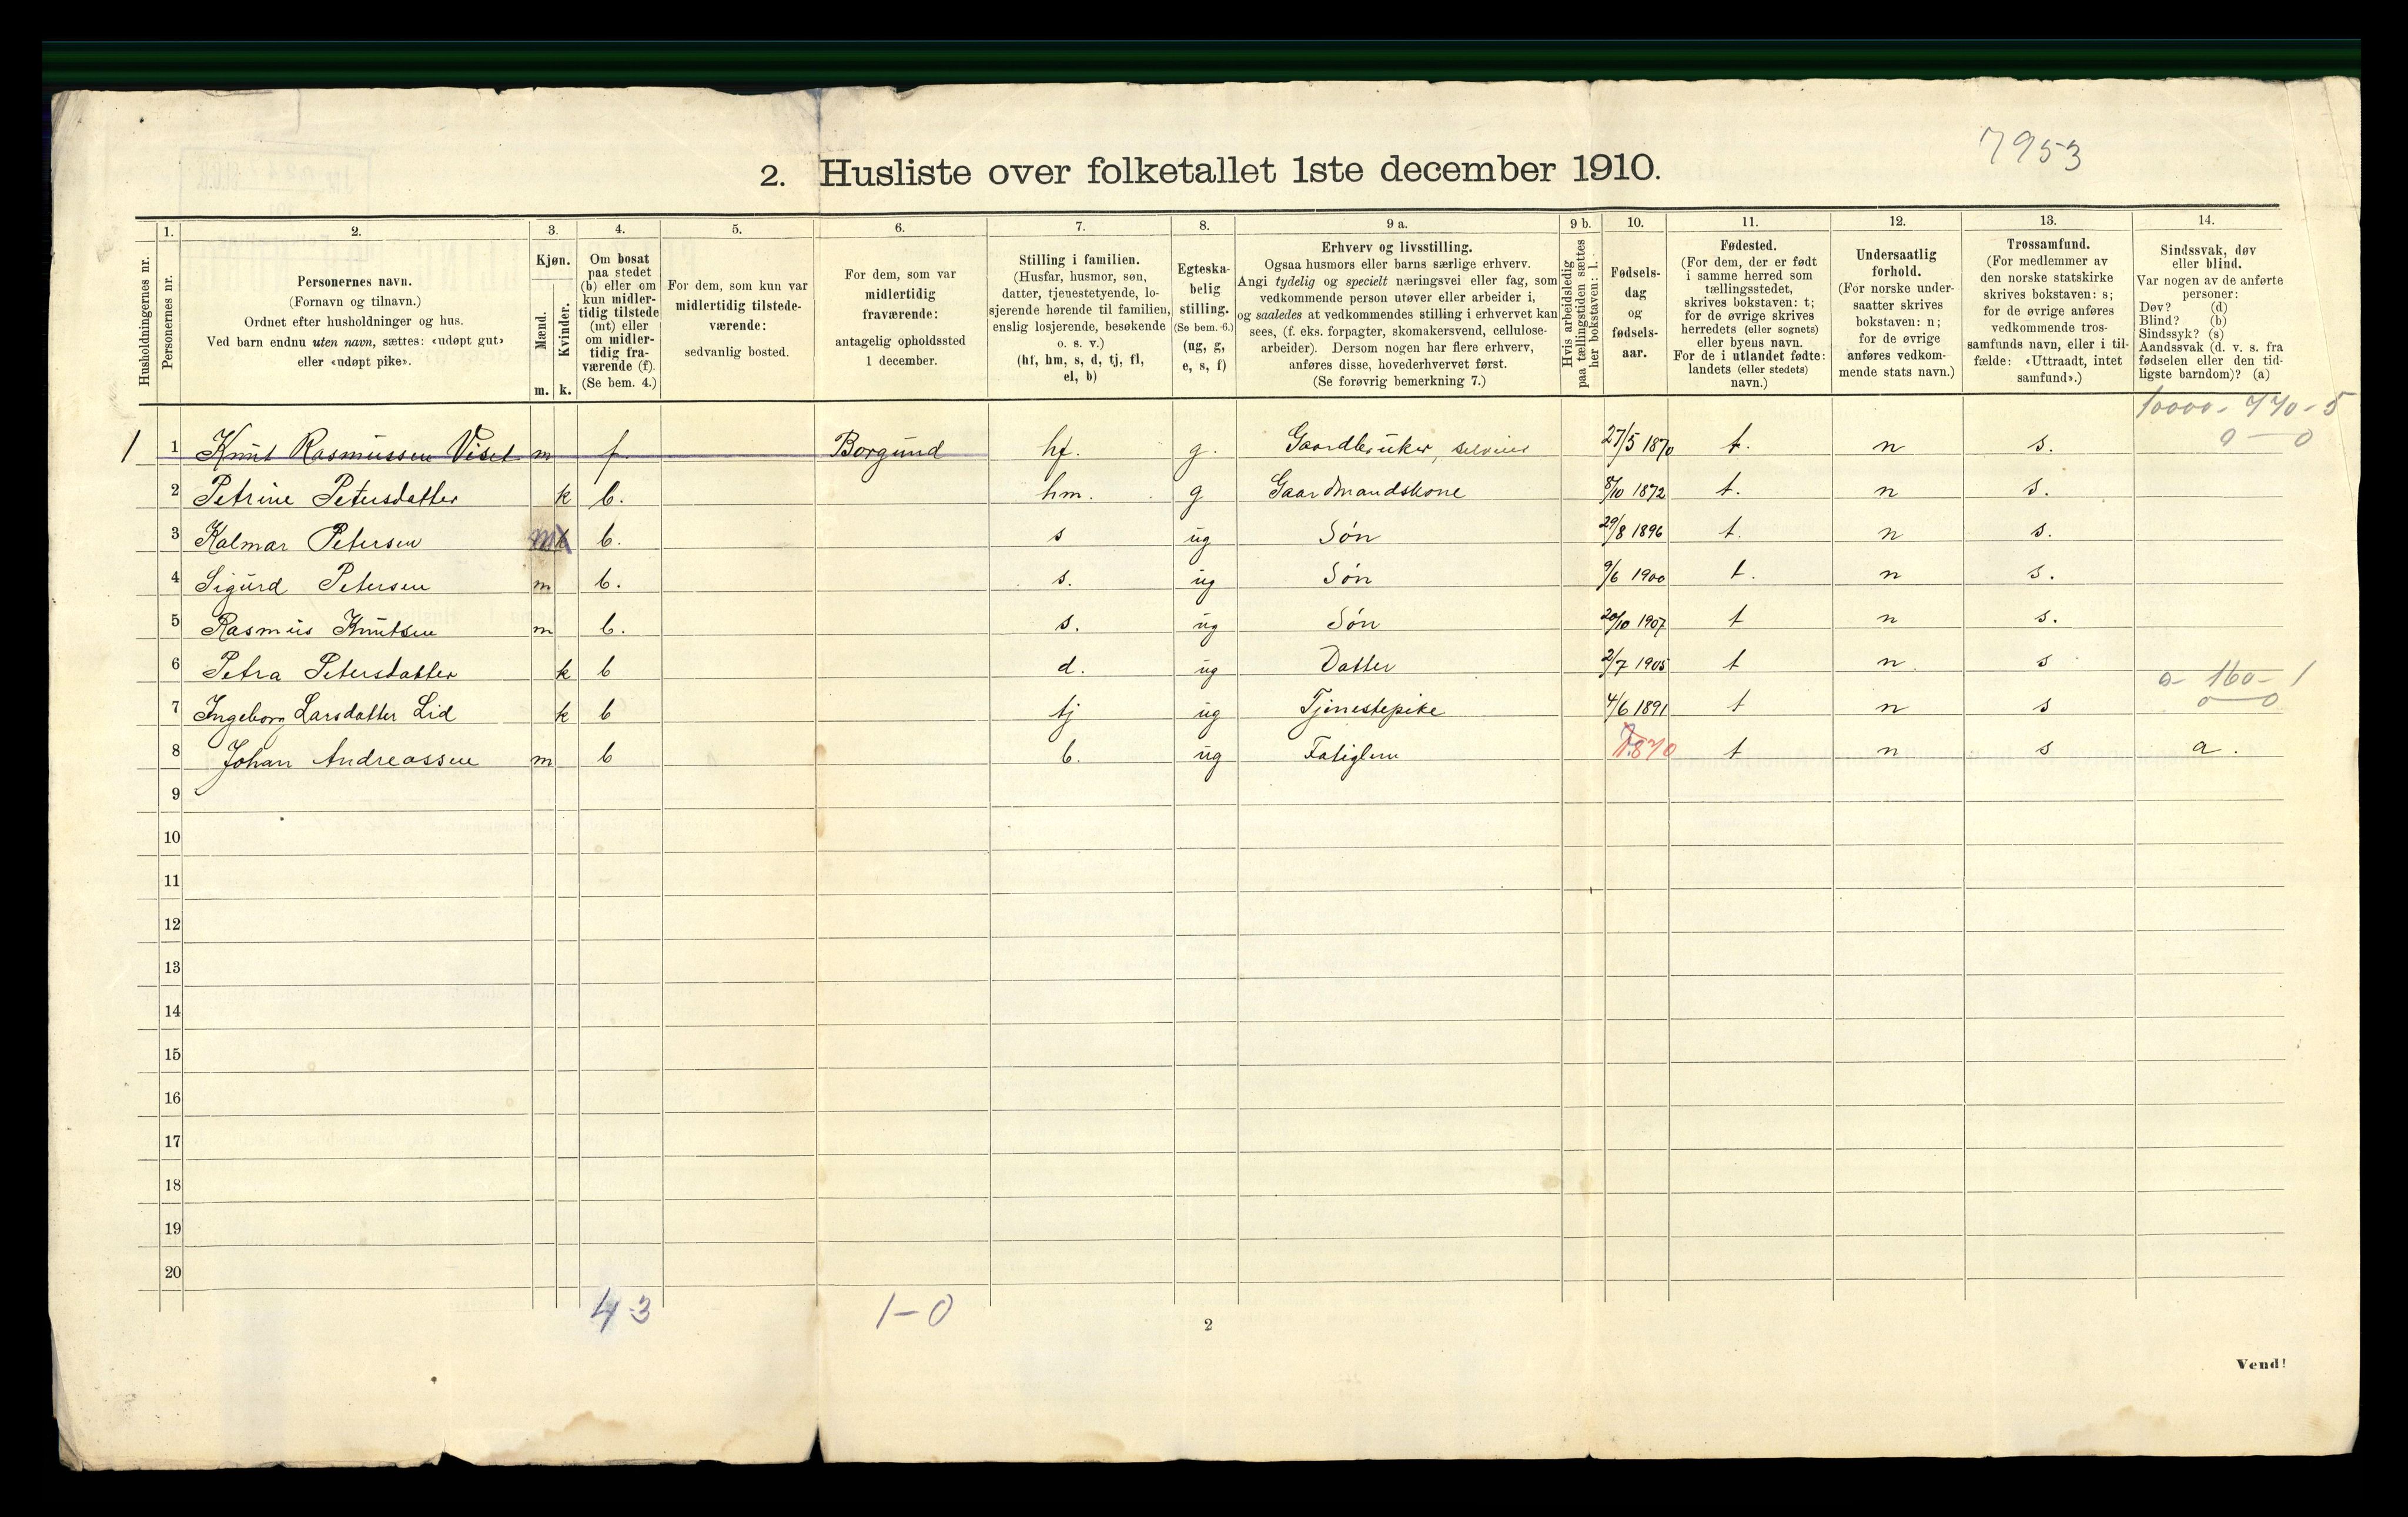 7953
2. Husliste over folketallet 1ste december 1910.
Husholdningernes nr.
1.
Personernes nr.
2.
Personernes navn.
(Fornavn og tilnavn.)
Ordnet efter husholdninger og hus.
Ved barn endnu uten navn, sættes: «udøpt gut»
eller «udøpt pike».
3.
Kjøn.
Mænd.
Kvinder.
m. k.
4.
Om bosat
paa stedet
(b) eller om
kun midler-
tidig tilstede
(mt) eller
om midler-
tidig fra-
værende (f).
(Se bem. 4.)
5.
For dem, som kun var
midlertidig tilstede-
værende:
sedvanlig bosted.
6.
For dem, som var
midlertidig
fraværende:
antagelig opholdssted
1 december.
7.
Stilling i familien.
(Husfar, husmor, søn,
datter, tjenestetyende, lo-
sjerende hørende til familien,
enslig losjerende, besøkende
o. s. v.)
(hf, hm, s, d, tj, fl,
el, b)
8.
Egteska-
belig
stilling.
(Se bem. 6.)
(ug, g,
e, s, f)
9 a.
Erhverv og livsstilling.
Ogsaa husmors eller barns særlige erhverv.
Angi tydelig og specielt næringsvei eller fag, som
vedkommende person utøver eller arbeider i,
og saaledes at vedkommendes stilling i erhvervet kan
sees, (f. eks. forpagter, skomakersvend, cellulose-
arbeider). Dersom nogen har flere erhverv,
anføres disse, hovederhvervet først.
(Se forøvrig bemerkning 7.)
9 b.
Hvis arbeidsledig
paa tællingstiden sættes
her bokstaven: l.
10.
Fødsels-
dag
og
fødsels-
aar.
11.
Fødested.
(For dem, der er født
i samme herred som
tællingsstedet,
skrives bokstaven: t;
for de øvrige skrives
herredets (eller sognets)
eller byens navn.
For de i utlandet fødte:
landets (eller stedets)
navn.)
12.
Undersaatlig
forhold.
(For norske under-
saatter skrives
bokstaven: n;
for de øvrige
anføres vedkom-
mende stats navn.)
13.
Trossamfund.
(For medlemmer av
den norske statskirke
skrives bokstaven: s;
for de øvrige anføres
vedkommende tros-
samfunds navn, eller i til-
fælde: «Uttraadt, intet
samfund».)
14.
Sindssvak, døv
eller blind.
Var nogen av de anførte
personer:
Døv? (d)
Blind? (b)
Sindssyk? (s)
Aandssvak (d. v. s. fra
fødselen eller den tid-
ligste barndom)? (a)
10000 - 770 - 5
0 — 0
1 1 Knut Rasmussen Viset m f Borgund hf. g. Gaardbruker, selveier 27/5 1870 t. n s.
2 Petrine Petersdatter k b. hm. g Gaardmandskone 8/10 1872 t. n s.
3 Kalmar Petersen m k b. s ug Søn 29/8 1896 t. n s.
4 Sigurd Petersen m b. s. ug Søn 9/6 1900 t. n s.
5 Rasmus Knutsen m b. s. ug Søn 20/10 1907 t n s.
6 Petra Petersdatter k b d. ug Datter 2/7 1905 t n. s
0 - 160 - 1
0 — 0
7 Ingeborg Larsdatter Lid k b tj ug Tjenestepike 4/6 1891 t n s
8 Johan Andreassen m b b. ug Fatiglem 1870 t n s a.
9
10
11
12
13
14
15
16
17
18
19
20
4-3 1-0
2
Vend!